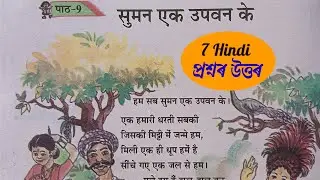 पाठ-9
सुमन एक उपवन के
7 Hindi
প্ৰশ্নৰ উত্তৰ
हम सब सुमन एक उपवन के।
एक हमारी धरती सबकी
जिसकी मिट्टी में जन्मे हम,
मिली एक ही धूप हमें है
सींचे गए एक जल से हम।